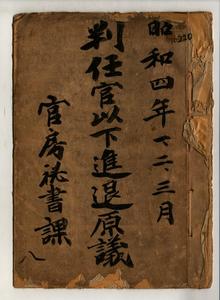 昭和四年一、二、三月
判任官以下進退原議
官房秘書課
八